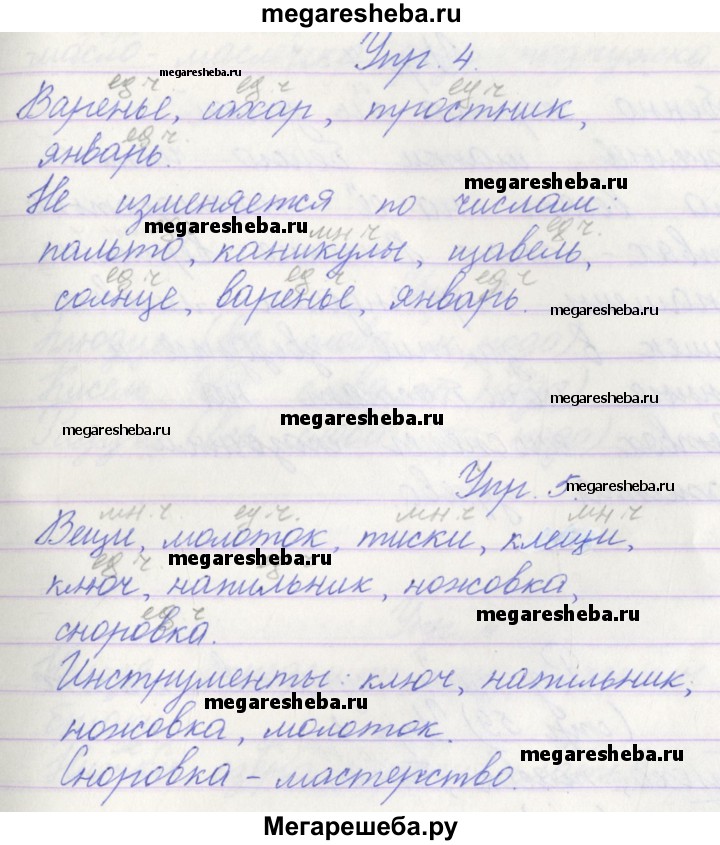 megaresheba.ru
Упр. 4.
megaresheba.ru
ед.ч ед.ч ед.ч
Варенье, сахар, тростник,
ед.ч
январь.
megaresheba.ru
Не изменяется по числам:
megaresheba.ru
мн.ч ед.ч.
пальто, каникулы, щавель,
ед.ч ед.ч ед.ч
солнце, варенье, январь.
megaresheba.ru
megaresheba.ru
megaresheba.ru
megaresheba.ru
Упр. 5.
мн.ч ед.ч. мн.ч мн.ч
Вещи, молоток, тиски, клещи,
megaresheba.ru
ед.ч
ключ, напильник, ножовка,
megaresheba.ru
ед.ч
сноровка.
Инструменты: ключ, напильник,
megaresheba.ru
ножовка, молоток.
megaresheba.ru
Сноровка – мастерство.
Мегарешеба.ру